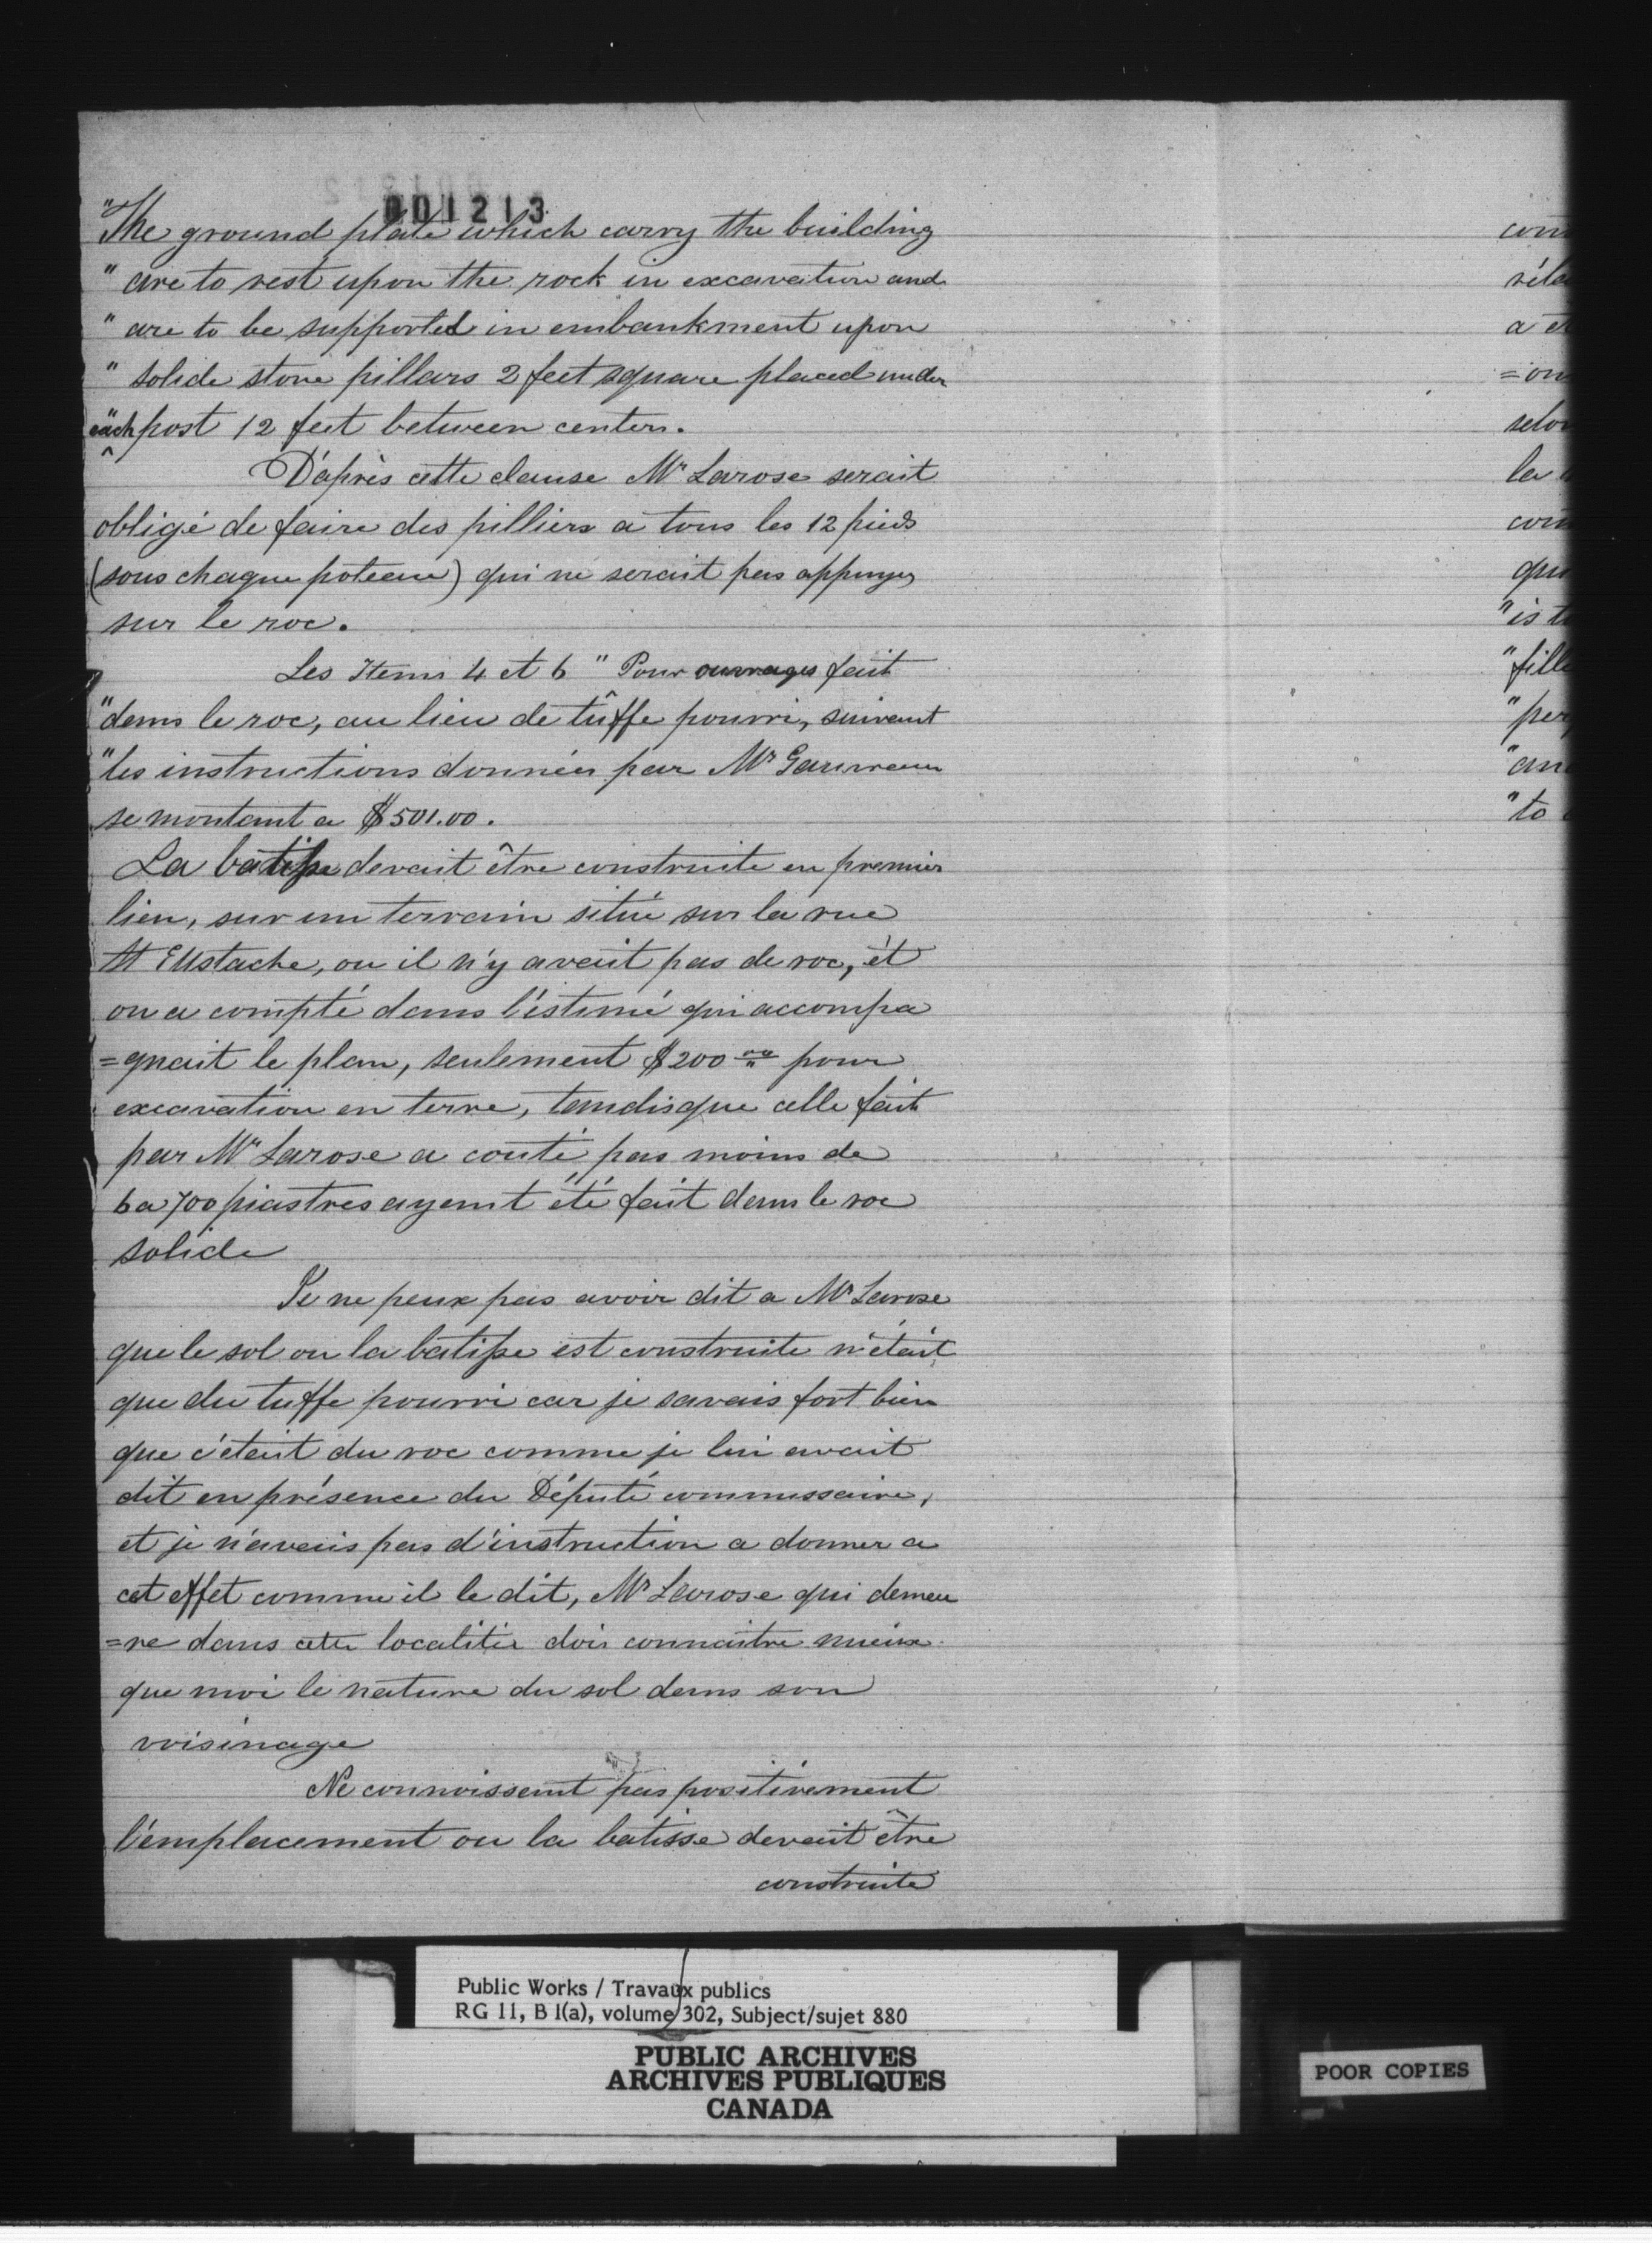 001213
"The ground plate which carry the building
" are to rest upon the rock in excavation and
" are to be supported in embankment upon
" solide stone pillars 2 feet square placed under
"each post 12 feet between centers.
D'après cette clause Mr Larose serait
obligé de faire des pilliers a tous les 12 pieds
(sous chaque poteau) qui ne serait pas appuyes
sur le roc.
Les Items 4 et 6 " Pour ouvrages fait
"dans le roc, au lieu de tûffe pourri, suivant
"les instructions données par Mr Gauvreau
se montant a $501.00.
La batisse devait être construite en premier
lieu, sur un terrain situé sur la rue
St Eustache, ou il n'y avait pas de roc, ét
on a compté dans l'éstimé qui accompa
=gnait le plan, seulement $200 00 pour
excavation en terre, tandisque celle fait
par Mr Larose a couté pas moins de
6 a 700 piastres ayant été fait dans le roc
solide
Je ne peux pas avoir dit a Mr Larose
que le sol ou la batisse est construite n'était
que du tuffe pourri car je savais fort bien
que c'était du roc comme je lui avait
dit en présence du Député commissaire,
et je n'avais pas d'instruction a donner a
cet effet comme il le dit, Mr Larose qui demeu
=re dans cette localitée dois connaitre mieux
que moi le nature du sol dans son
voisinage
Ne connoissant pas positivement
l'emplacement ou la batisse devait être
construite
com
réla
a et
=on
selon
la
com
que
"is t
"fille
"per
"an
"to
Public Works / Travaux publics
RG 11, B 1(a), volume 302, Subject/sujet 880
PUBLIC ARCHIVES
ARCHIVES PUBLIQUES
CANADA
POOR COPIES